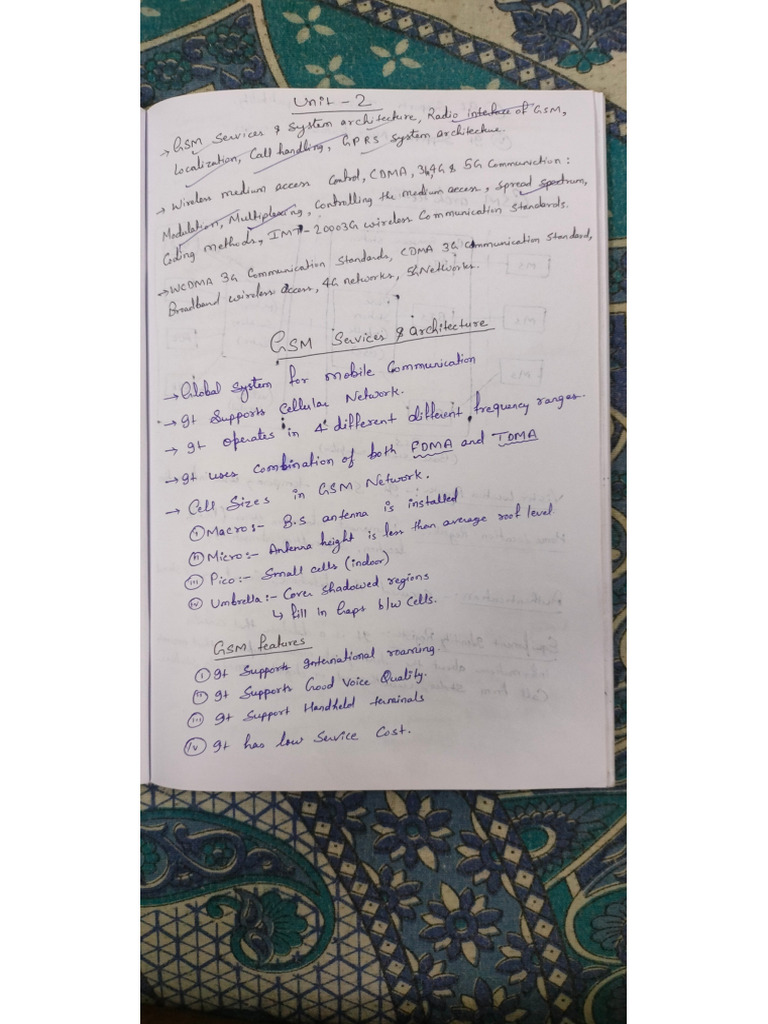 Unit - 2
→ GSM Services & System architecture, Radio interface of GSM,
Localization, Call handling, GPRS System architecture.
→ Wireless medium access Control, CDMA, 3G,4G & 5G Communiction :
Modulation, Multiplexing, Controlling the medium access, Spread Spectrum,
Coding methods, IMT-20003G wireless Communication Standards.
→ WCDMA 3G Communication Standards, CDMA 3G Communication Standard,
Broadband wireless access, 4G networks, 5G Networks.
GSM Services & architecture
→ Global System for mobile Communication
→ It Supports Cellular Network.
→ It operates in 4 different different frequency ranges.
→ It uses Combination of both FDMA and TDMA
→ Cell Sizes in GSM Network.
(i) Macro :- B.S antenna is installed
(ii) Micro :- Antenna height is less than average roof level
(iii) Pico :- Small cells (indoor)
(iv) Umbrella :- Cover Shadowed regions
↳ Fill in Gaps b/w Cells.
GSM features
(i) It Supports International roaming.
(ii) It Supports Good Voice Quality.
(iii) It Support Handheld terminals
(iv) It has low Service Cost.